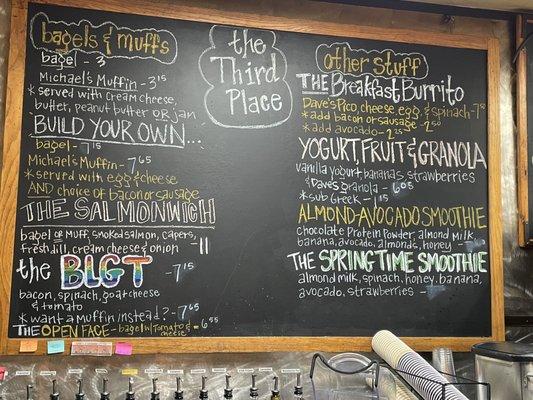 bagels & muffs
bagel - 3
Michael's Muffin - 3.15
* served with cream cheese,
butter, peanut butter OR jam
BUILD YOUR OWN...
bagel - 7.15
Michael's Muffin - 7.65
* served with egg & cheese
AND choice of bacon or sausage
THE SALMONWICH
bagel or muff, smoked salmon, capers,
fresh dill, cream cheese & onion - 11
the BLGT - 7.15
bacon, spinach, goat cheese
& tomato
* want a muffin instead? - 7.65
THE OPEN FACE - bagel w/ tomato & cheese - 6.55
the
Third
Place
other stuff
THE Breakfast Burrito
Dave's Pico, cheese, egg, & spinach - 7.50
* add bacon or sausage - 2.50
* add avocado - 2.25
YOGURT, FRUIT & GRANOLA
vanilla yogurt, bananas, strawberries
& Dave's granola - 6.05
* sub Greek - 1.15
ALMOND-AVOCADO SMOOTHIE
chocolate Protein Powder, almond milk,
banana, avocado, almonds, honey -
THE SPRING TIME SMOOTHIE
almond milk, spinach, honey, banana,
avocado, strawberries -